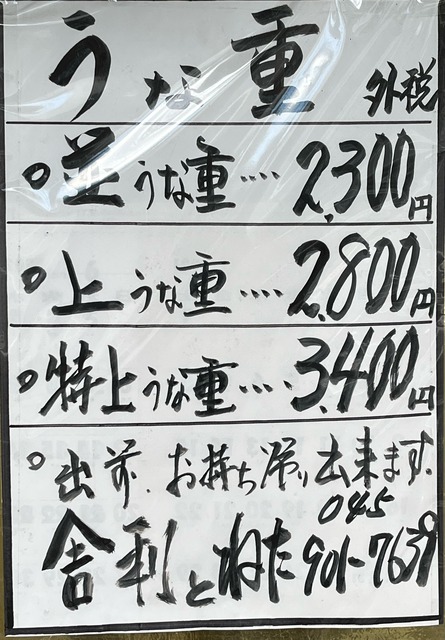 うな重 外税
○並うな重‥‥2,300円
○上うな重‥‥2,800円
○特上うな重‥‥3,400円
○出前.お持ち帰り出来ます.
045
舎利とねた 901-7639